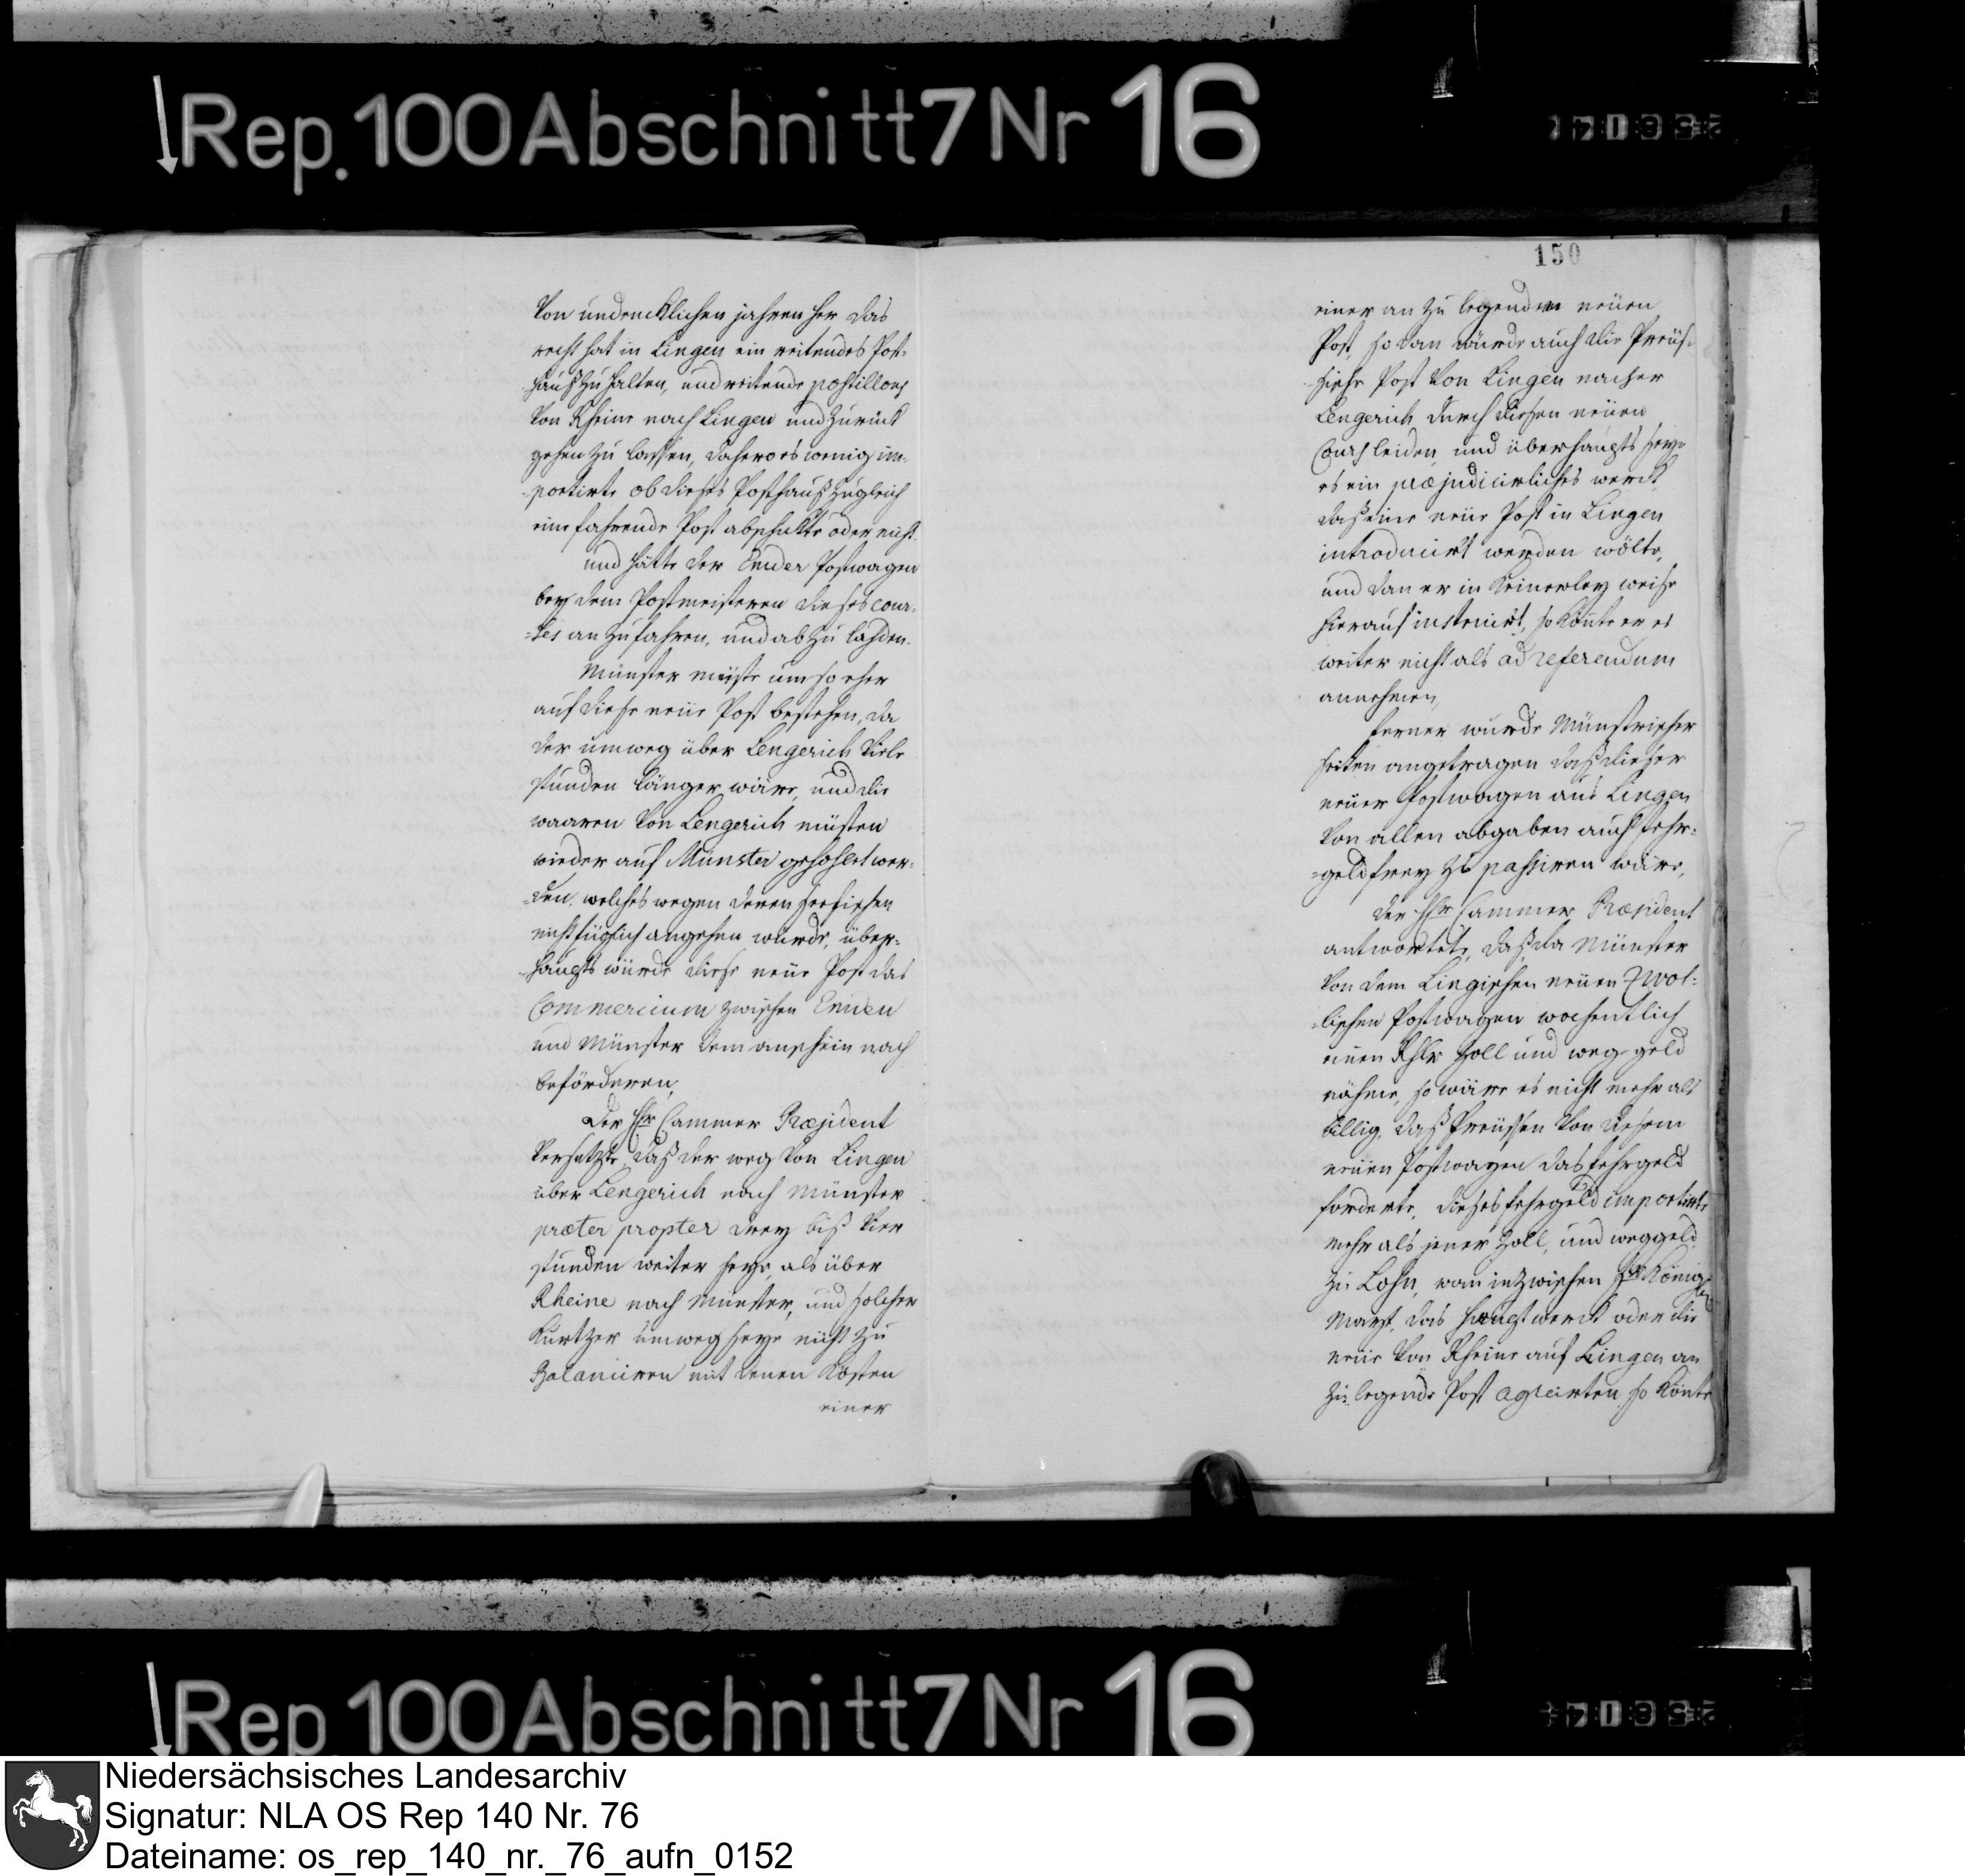 Rep. 100 Abschnitt 7 Nr 16
von undencklichen jahren her das
recht hat in Lingen ein reitendes Post-
hauß zu halten, und reitende postillons
von Rheine nach Lingen und zurück
gehen zu lassen, dahero es wenig im-
portirte ob dieses Posthauß zugleich
eine fahrende Post abschickte oder nicht.
und hätte der Emder Postwagen
bey dem Postmeisteren dieses cour-
=ses an zu fahren, und ab zu laden.
Münster müste um so eher
auf diese neüe Post bestehen, da
der umweg über Lengerich viele
stunden länger wäre, und die
waaren von Lengerich müsten
wieder auf Münster gehohlet wer-
=den, welches wegen deren seefischen
nicht füglich angehen würde, über-
haupts würde diese neüe Post das
Commercium zwischen Emden
und Münster dem anschein nach
beförderen,
Der Hr Cammer Præsident
versetzte, daß der weg von Lingen
über Lengerich nach Münster
præter propter drey biß vier
stunden weiter seye, als über
Rheine nach Münster, und solcher
kurtzer umweg seye nicht zu
Balanciren mit denen Kösten
einer
150
einer an zu legenden neüen
Post, so dan würde auch die Preüs-
sische Post von Lingen nacher
Lengerich durch diesen neüen
Cours leiden, und überhaupts seye
es ein præjudicirliches werck,
daß eine neüe Post in Lingen
introducirt werden wölte,
und dan er in keinerley weise
hierauf instruirt, so könte er es
weiter nicht als ad referendum
annehmen,
Ferner wurde Münstrischer
seiten angetragen daß dieser
neüer Postwagen aus Lingen
von allen abgaben auch fehr-
=geld frey zu passiren wäre,
der Hr Cammer Præsident
antwortete, daß da Münster
von dem Lingischen neüen Zwol-
=lischen Postwagen wochentlich
einen Rhlr Zoll und weg geld
nähme, so wäre es nicht mehr als
billig, daß Preüssen von diesem
neüen Postwagen das fehrgeld
forderte, dieses fehrgeld importirte
mehr als jener Zoll, und weggeld
zu Lohn, wan inzwischen Ihr Königl
Mayst. das hauptwerck oder die
neüe von Rheine auf Lingen an
zu legende Post agreirten, so könte
Rep. 100 Abschnitt 7 Nr 16
Niedersächsisches Landesarchiv
Signatur: NLA OS Rep 140 Nr. 76
Dateiname: os_rep_140_nr._76_aufn_0152